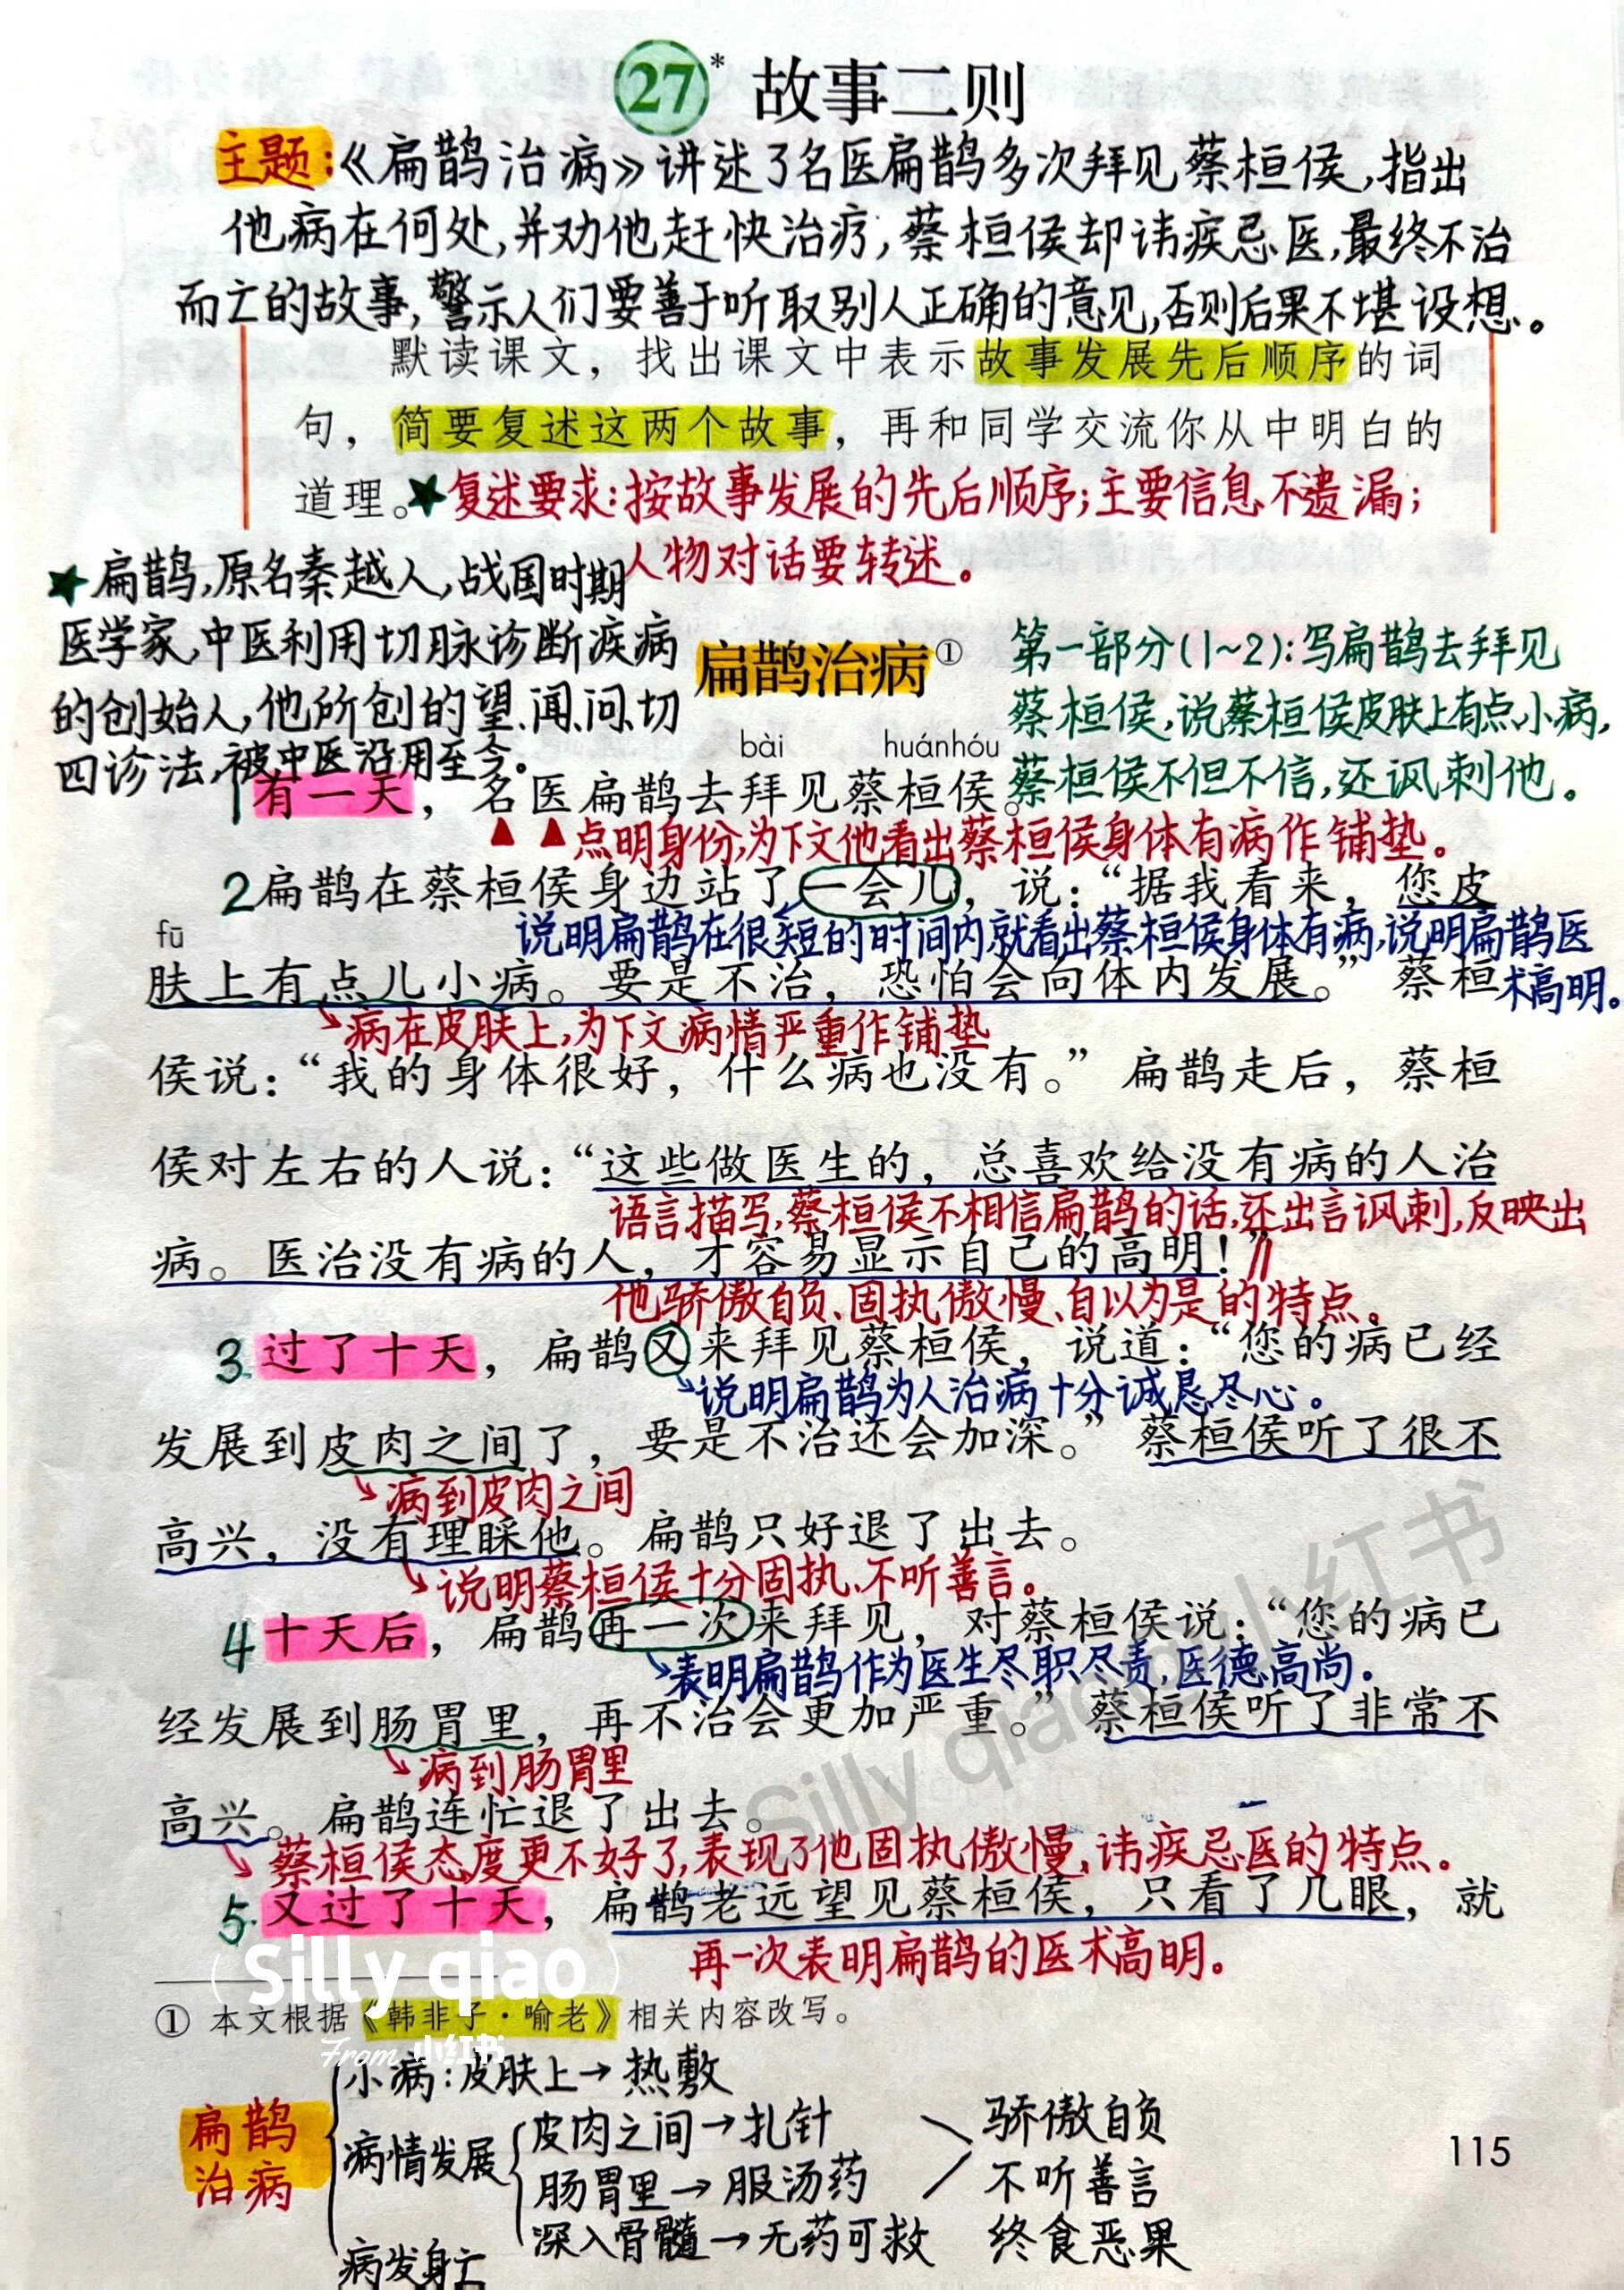 27* 故事二则
主题:《扁鹊治病》讲述了名医扁鹊多次拜见蔡桓侯,指出
他病在何处,并劝他赶快治疗,蔡桓侯却讳疾忌医,最终不治
而亡的故事,警示人们要善于听取别人正确的意见,否则后果不堪设想。
默读课文，找出课文中表示故事发展先后顺序的词
句，简要复述这两个故事，再和同学交流你从中明白的
道理。
★复述要求:按故事发展的先后顺序;主要信息不遗漏;
人物对话要转述。
★扁鹊,原名秦越人,战国时期
医学家,中医利用切脉诊断疾病
的创始人,他所创的望、闻、问、切
四诊法,被中医沿用至今。
扁鹊治病①
第一部分(1~2):写扁鹊去拜见
蔡桓侯,说蔡桓侯皮肤上有点小病,
蔡桓侯不但不信,还讽刺他。
bài huánhóu
1有一天，名医扁鹊去拜见蔡桓侯。
点明身份,为下文他看出蔡桓侯身体有病作铺垫。
2扁鹊在蔡桓侯身边站了一会儿，说：“据我看来，您皮
说明扁鹊在很短的时间内,就看出蔡桓侯身体有病,说明扁鹊医
术高明。
fū
肤上有点儿小病。要是不治，恐怕会向体内发展。”蔡桓
病在皮肤上,为下文病情严重作铺垫
侯说：“我的身体很好，什么病也没有。”扁鹊走后，蔡桓
侯对左右的人说：“这些做医生的，总喜欢给没有病的人治
语言描写,蔡桓侯不相信扁鹊的话,还出言讽刺,反映出
病。医治没有病的人，才容易显示自己的高明！”
他骄傲自负、固执傲慢、自以为是的特点。
3.过了十天，扁鹊又来拜见蔡桓侯，说道：“您的病已经
说明扁鹊为人治病十分诚恳尽心。
发展到皮肉之间了，要是不治还会加深。”蔡桓侯听了很不
病到皮肉之间
高兴，没有理睬他。扁鹊只好退了出去。
说明蔡桓侯十分固执、不听善言。
4十天后，扁鹊再一次来拜见，对蔡桓侯说：“您的病已
表明扁鹊作为医生尽职尽责,医德高尚。
经发展到肠胃里，再不治会更加严重。”蔡桓侯听了非常不
病到肠胃里
高兴。扁鹊连忙退了出去。
蔡桓侯态度更不好了,表现了他固执傲慢,讳疾忌医的特点。
5.又过了十天，扁鹊老远望见蔡桓侯，只看了几眼，就
再一次表明扁鹊的医术高明。
Silly qiao 小红书
(Silly qiao)
From 小红书
① 本文根据《韩非子·喻老》相关内容改写。
扁鹊
治病
小病:皮肤上→热敷
病情发展
皮肉之间→扎针
肠胃里→服汤药
深入骨髓→无药可救
病发身亡
骄傲自负
不听善言
终食恶果
115